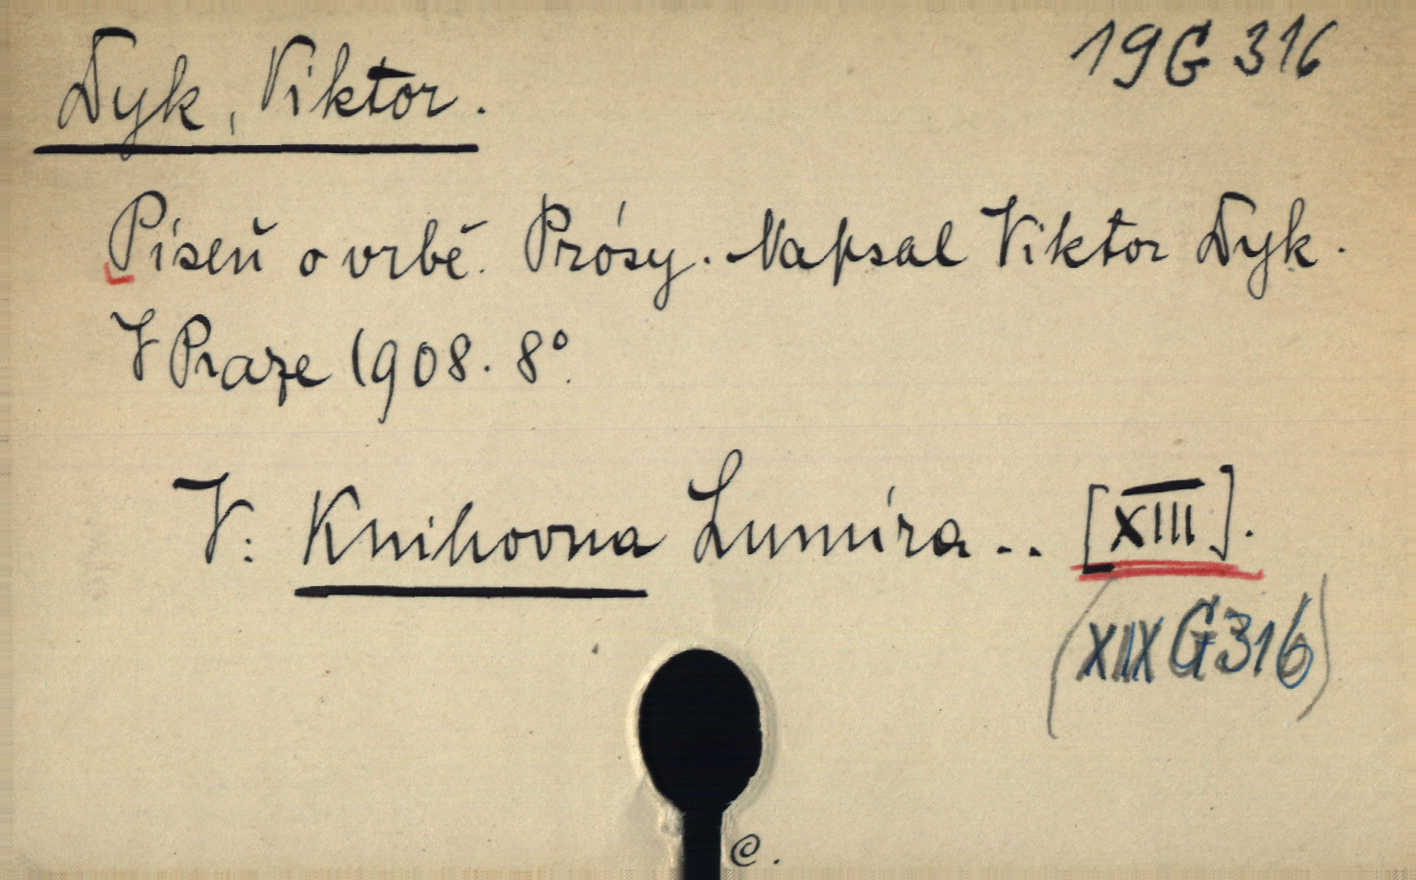 19 G 316
Dyk, Viktor.
Píseň o vrbě. Prósy. Napsal Viktor Dyk.
V Praze 1908. 8°.
V: Knihovna Lumíra .. [XIII].
(XIX G 316)
C.